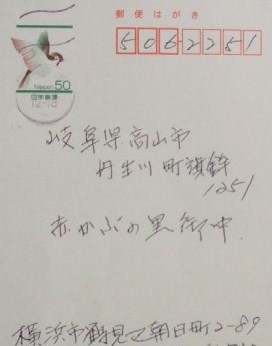 郵便はがき
5062251
Nippon 50
日本郵便
12-18
岐阜県高山市
丹生川町旗鉾
1251
赤かぶの里街中
横浜市鶴見区朝日町2-89